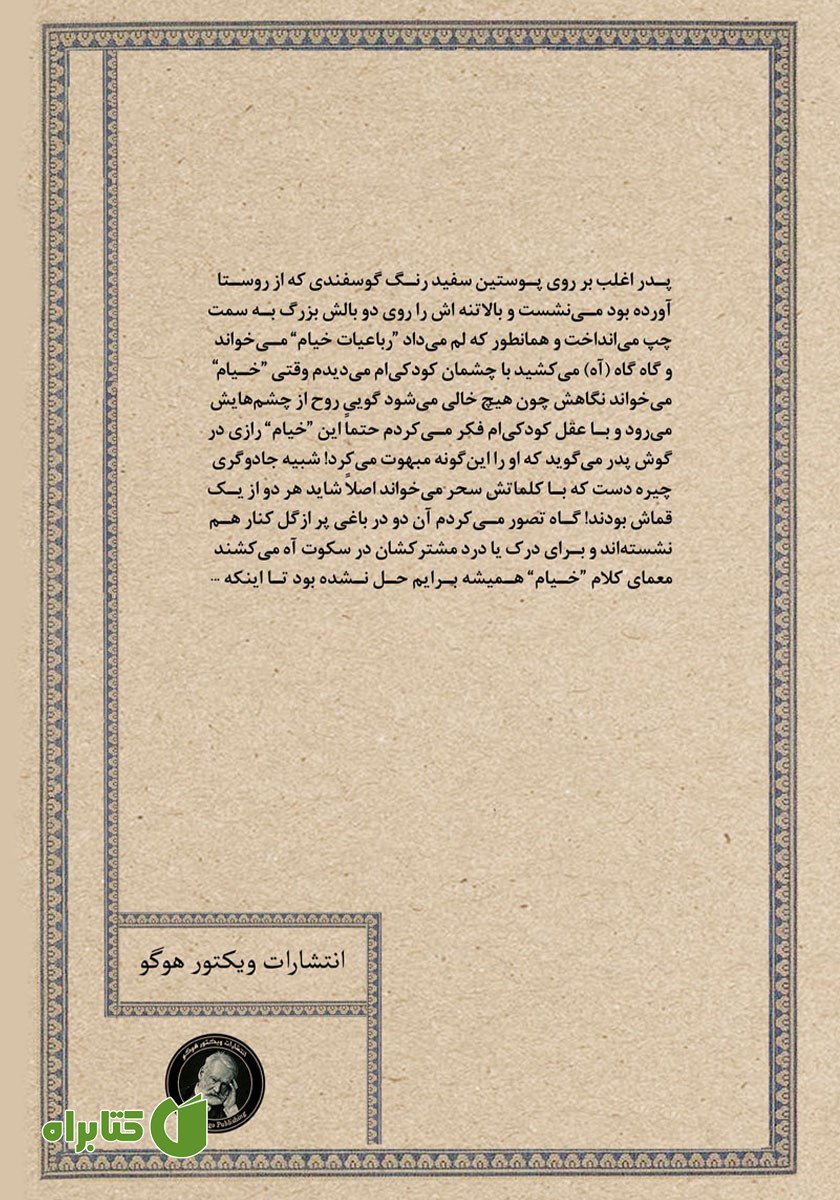 پدر اغلب بر روی پوستین سفید رنگ گوسفندی که از روستا
آورده بود می‌نشست و بالاتنه اش را روی دو بالش بزرگ به سمت
چپ می‌انداخت و همانطور که لم می‌داد "رباعیات خیام" می‌خواند
و گاه گاه (آه) می‌کشید با چشمان کودکی‌ام می‌دیدم وقتی "خیام"
می‌خواند نگاهش چون هیچ خالی می‌شود گویی روح از چشم‌هایش
می‌رود و با عقل کودکی‌ام فکر می‌کردم حتماً این "خیام" رازی در
گوش پدر می‌گوید که او را این‌گونه مبهوت می‌کرد! شبیه جادوگری
چیره دست که با کلماتش سحر می‌خواند اصلاً شاید هر دو از یک
قماش بودند! گاه تصور می‌کردم آن دو در باغی پر از گل کنار هم
نشسته‌اند و برای درک یا درد مشترکشان در سکوت آه می‌کشند
معمای کلام "خیام" همیشه برایم حل نشده بود تا اینکه ...
انتشارات ویکتور هوگو
انتشارات ویکتور هوگو
Publishing
کتابراه